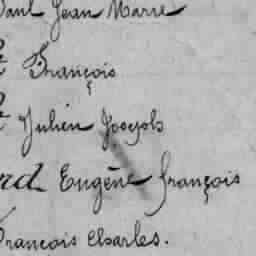 Paul Jean Marie
François
Julien Joseph
rd Eugène François
François Charles.